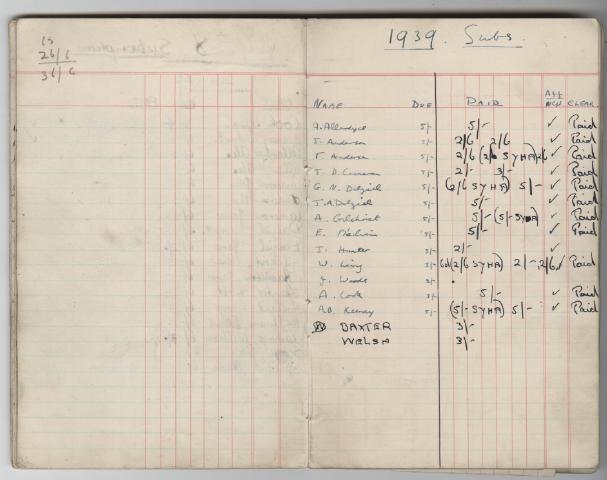 15
26/6
31/6
1939. Subs.
NAME DUE PAID Aff NCN CLEAR
A. Allardyce 5/- 5/- ✓ Paid
J. Anderson 5/- 2/6 2/6 ✓ Paid
T. Anderson 5/- 2/6 SYHA) 2/6 ✓ Paid
J. D. Cameron 5/- 2/- 3/- ✓ Paid
G. N. Dalziel 5/- (2/6 SYHA) 5/- ✓ Paid
J. A. Dalziel 5/- 5/- ✓ Paid
A. Gilchrist 5/- 5/- (5/- SYHA) ✓ Paid
E. 5/- 5/- ✓ Paid
J. Hunter 5/- 2/- ✓
W. 5/- (2/6 SYHA) 2/-, 2/6 ✓ Paid
J. Woods 5/-
A. Cook 5/- 5/- ✓ Paid
5/- (5/- SYHA) 5/- ✓ Paid
BAXTER 3/-
WELSH 3/-